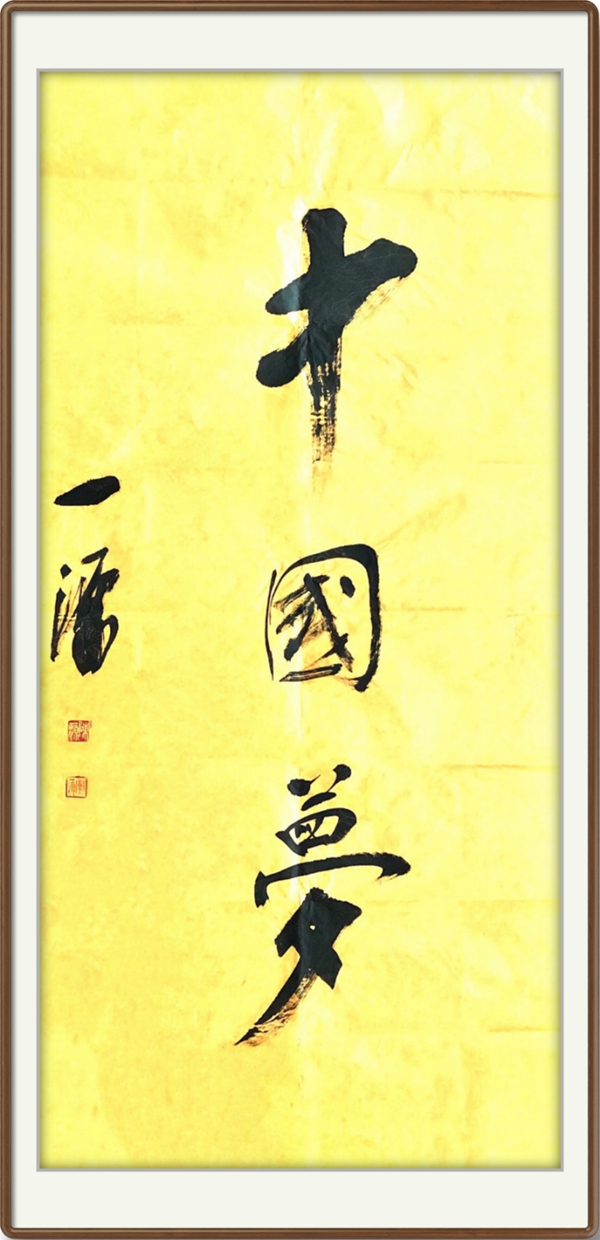 中國夢
一